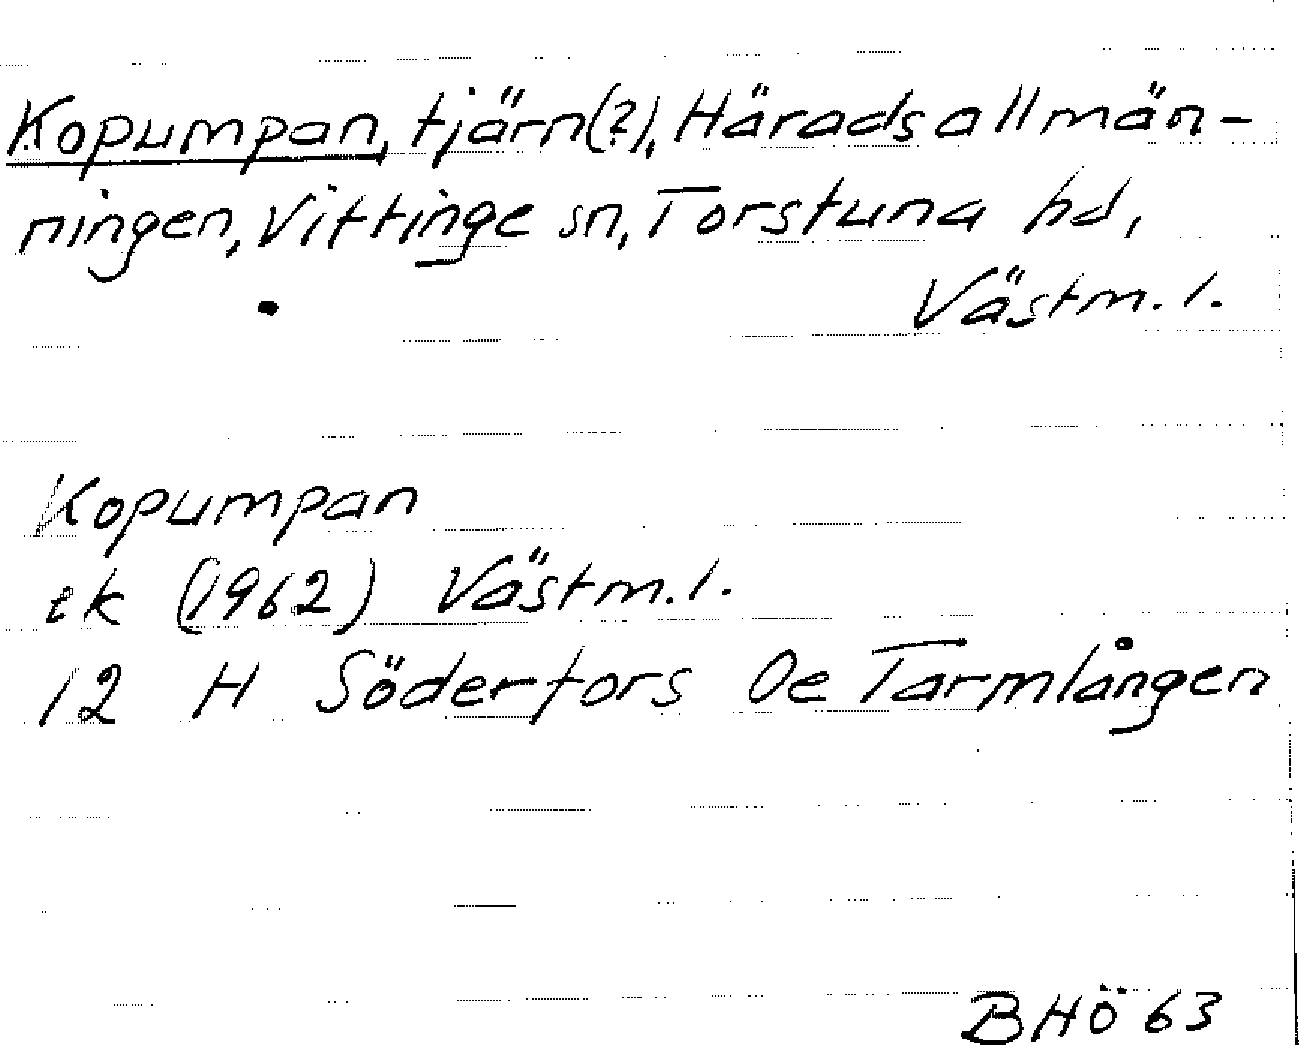 Kopumpan, tjärn(?), Häradsallmän-
ningen, Vittinge sn, Torstuna hd,
Västm. l.
Kopumpan
ek (1962) Västm. l.
12 H Söderfors Oe Tarmlången
BHÖ 63